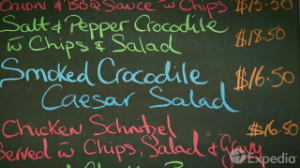 Onion & BBQ Sauce w Chips $15.50
Salt & Pepper Crocodile
w Chips & Salad $18.50
Smoked Crocodile $16.50
Caesar Salad
Chicken Schnitzel $16.50
Served w Chips, Salad & Gravy
Expedia